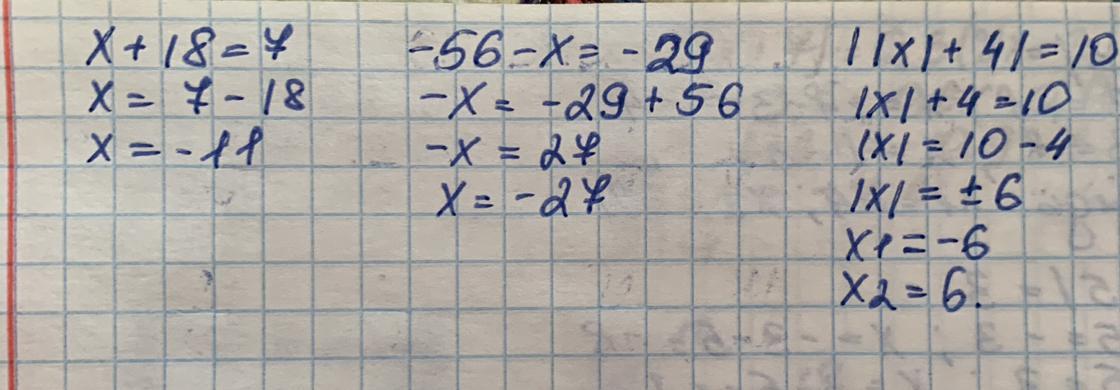 x + 18 = 7
x = 7 - 18
x = -11
-56 - x = -29
-x = -29 + 56
-x = 27
x = -27
||x| + 4| = 10
|x| + 4 = 10
|x| = 10 - 4
|x| = ± 6
x1 = -6
x2 = 6.